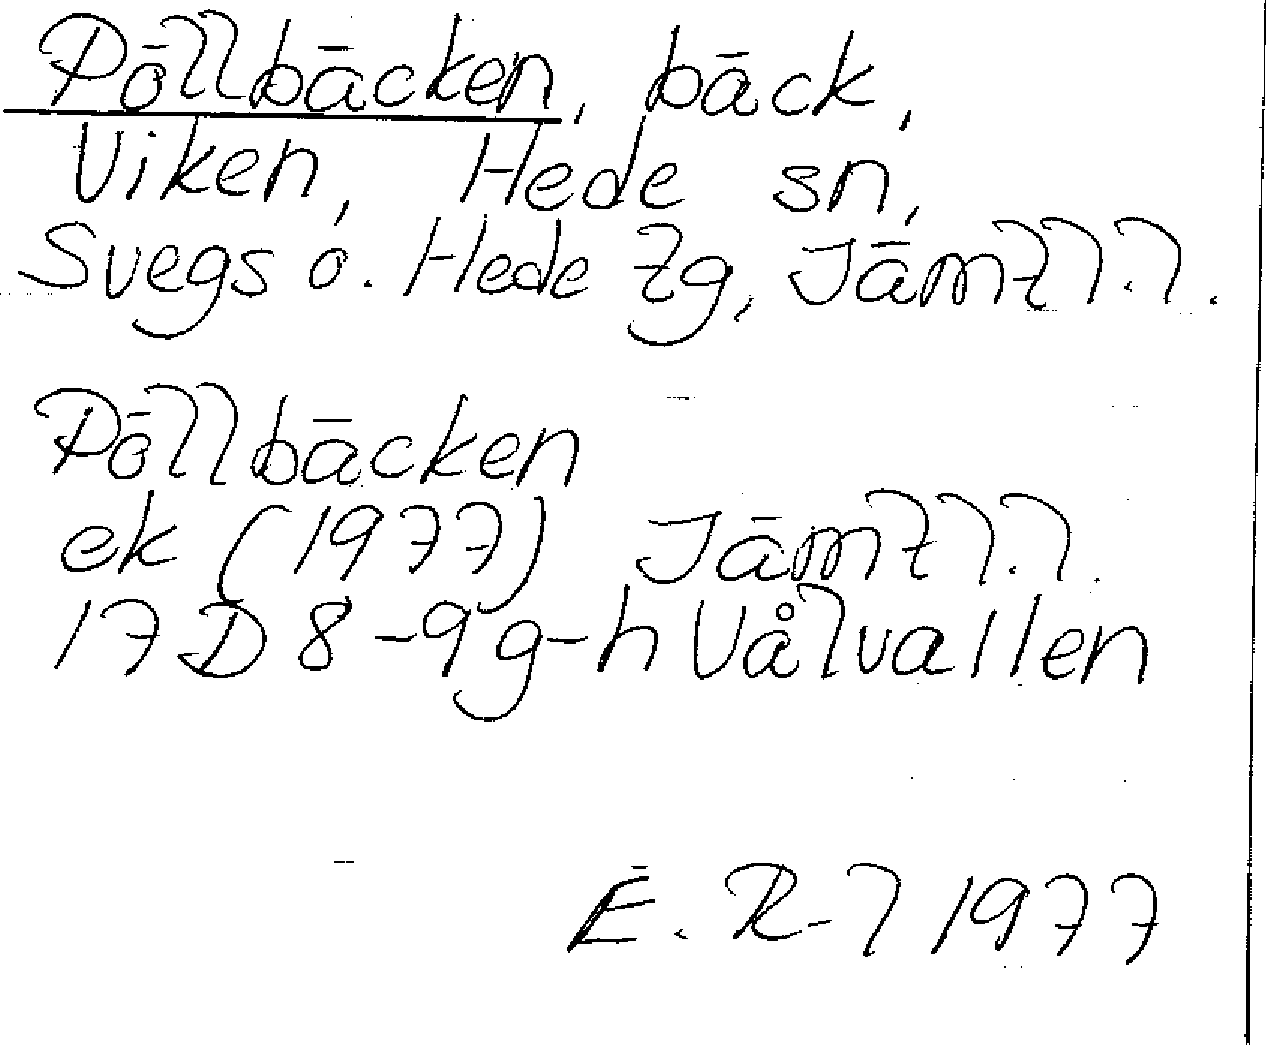 Pöllbäcken, bäck,
Viken, Hede sn,
Svegs o. Hede tg, Jämtl.l.
Pöllbäcken
ek (1977) Jämtl.l.
17D 8-9g-h Vålvallen
E. R-l 1977